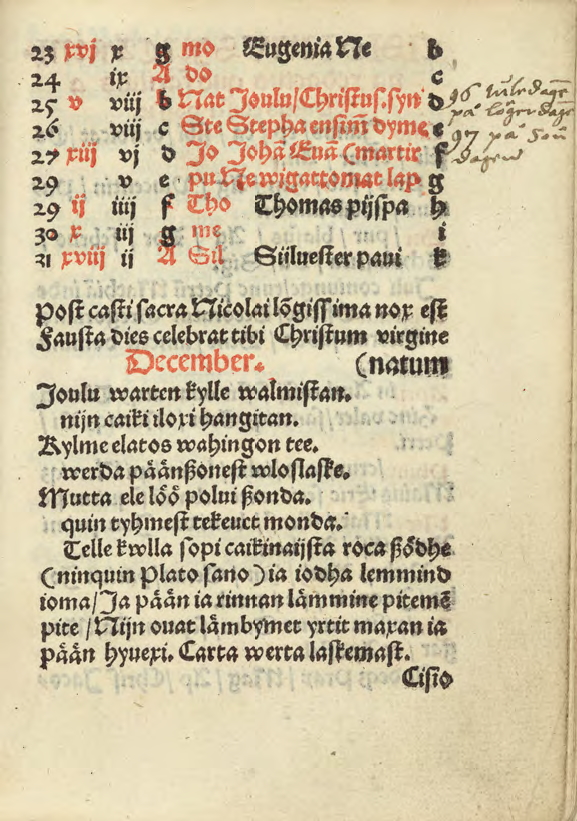 23 xvj x g mo Eugenia Ne b
24 ix A do c
25 v viij b Nat Joulu/Christus.syn d
26 viij c Ste Stepha ensim̃ dyme e
27 xiij vj d Jo Johã Euã (martir f
29 v e pu Ne wigattomat lap g
29 ij iiij f Tho Thomas pijspa h
30 x iij g me i
31 xviij ij A Sil Siluester paui k
96 iuledagẽ
på lögerdagẽ
97 på Sön
dagen
Post casti sacra Nicolai lõgissima nox est
Fausta dies celebrat tibi Christum virgine
December. (natum
Joulu warten kylle walmistan.
nijn caiki iloxi hangitan.
Kylme elatos wahingon tee.
werda päänßonest wloslaske.
Mutta ele löö polui ßonda.
quin tyhmest tekeuct monda.
Telle kwlla sopi caikinaijsta roca ßödhe
(ninquin Plato sano) ia iodha lemmind
ioma/Ja pään ia rinnan lämmine pitemẽ
pite/Nijn ouat lämbymet yrtit maxan ia
pään hyuexi. Carta werta laskemast.
Cisio